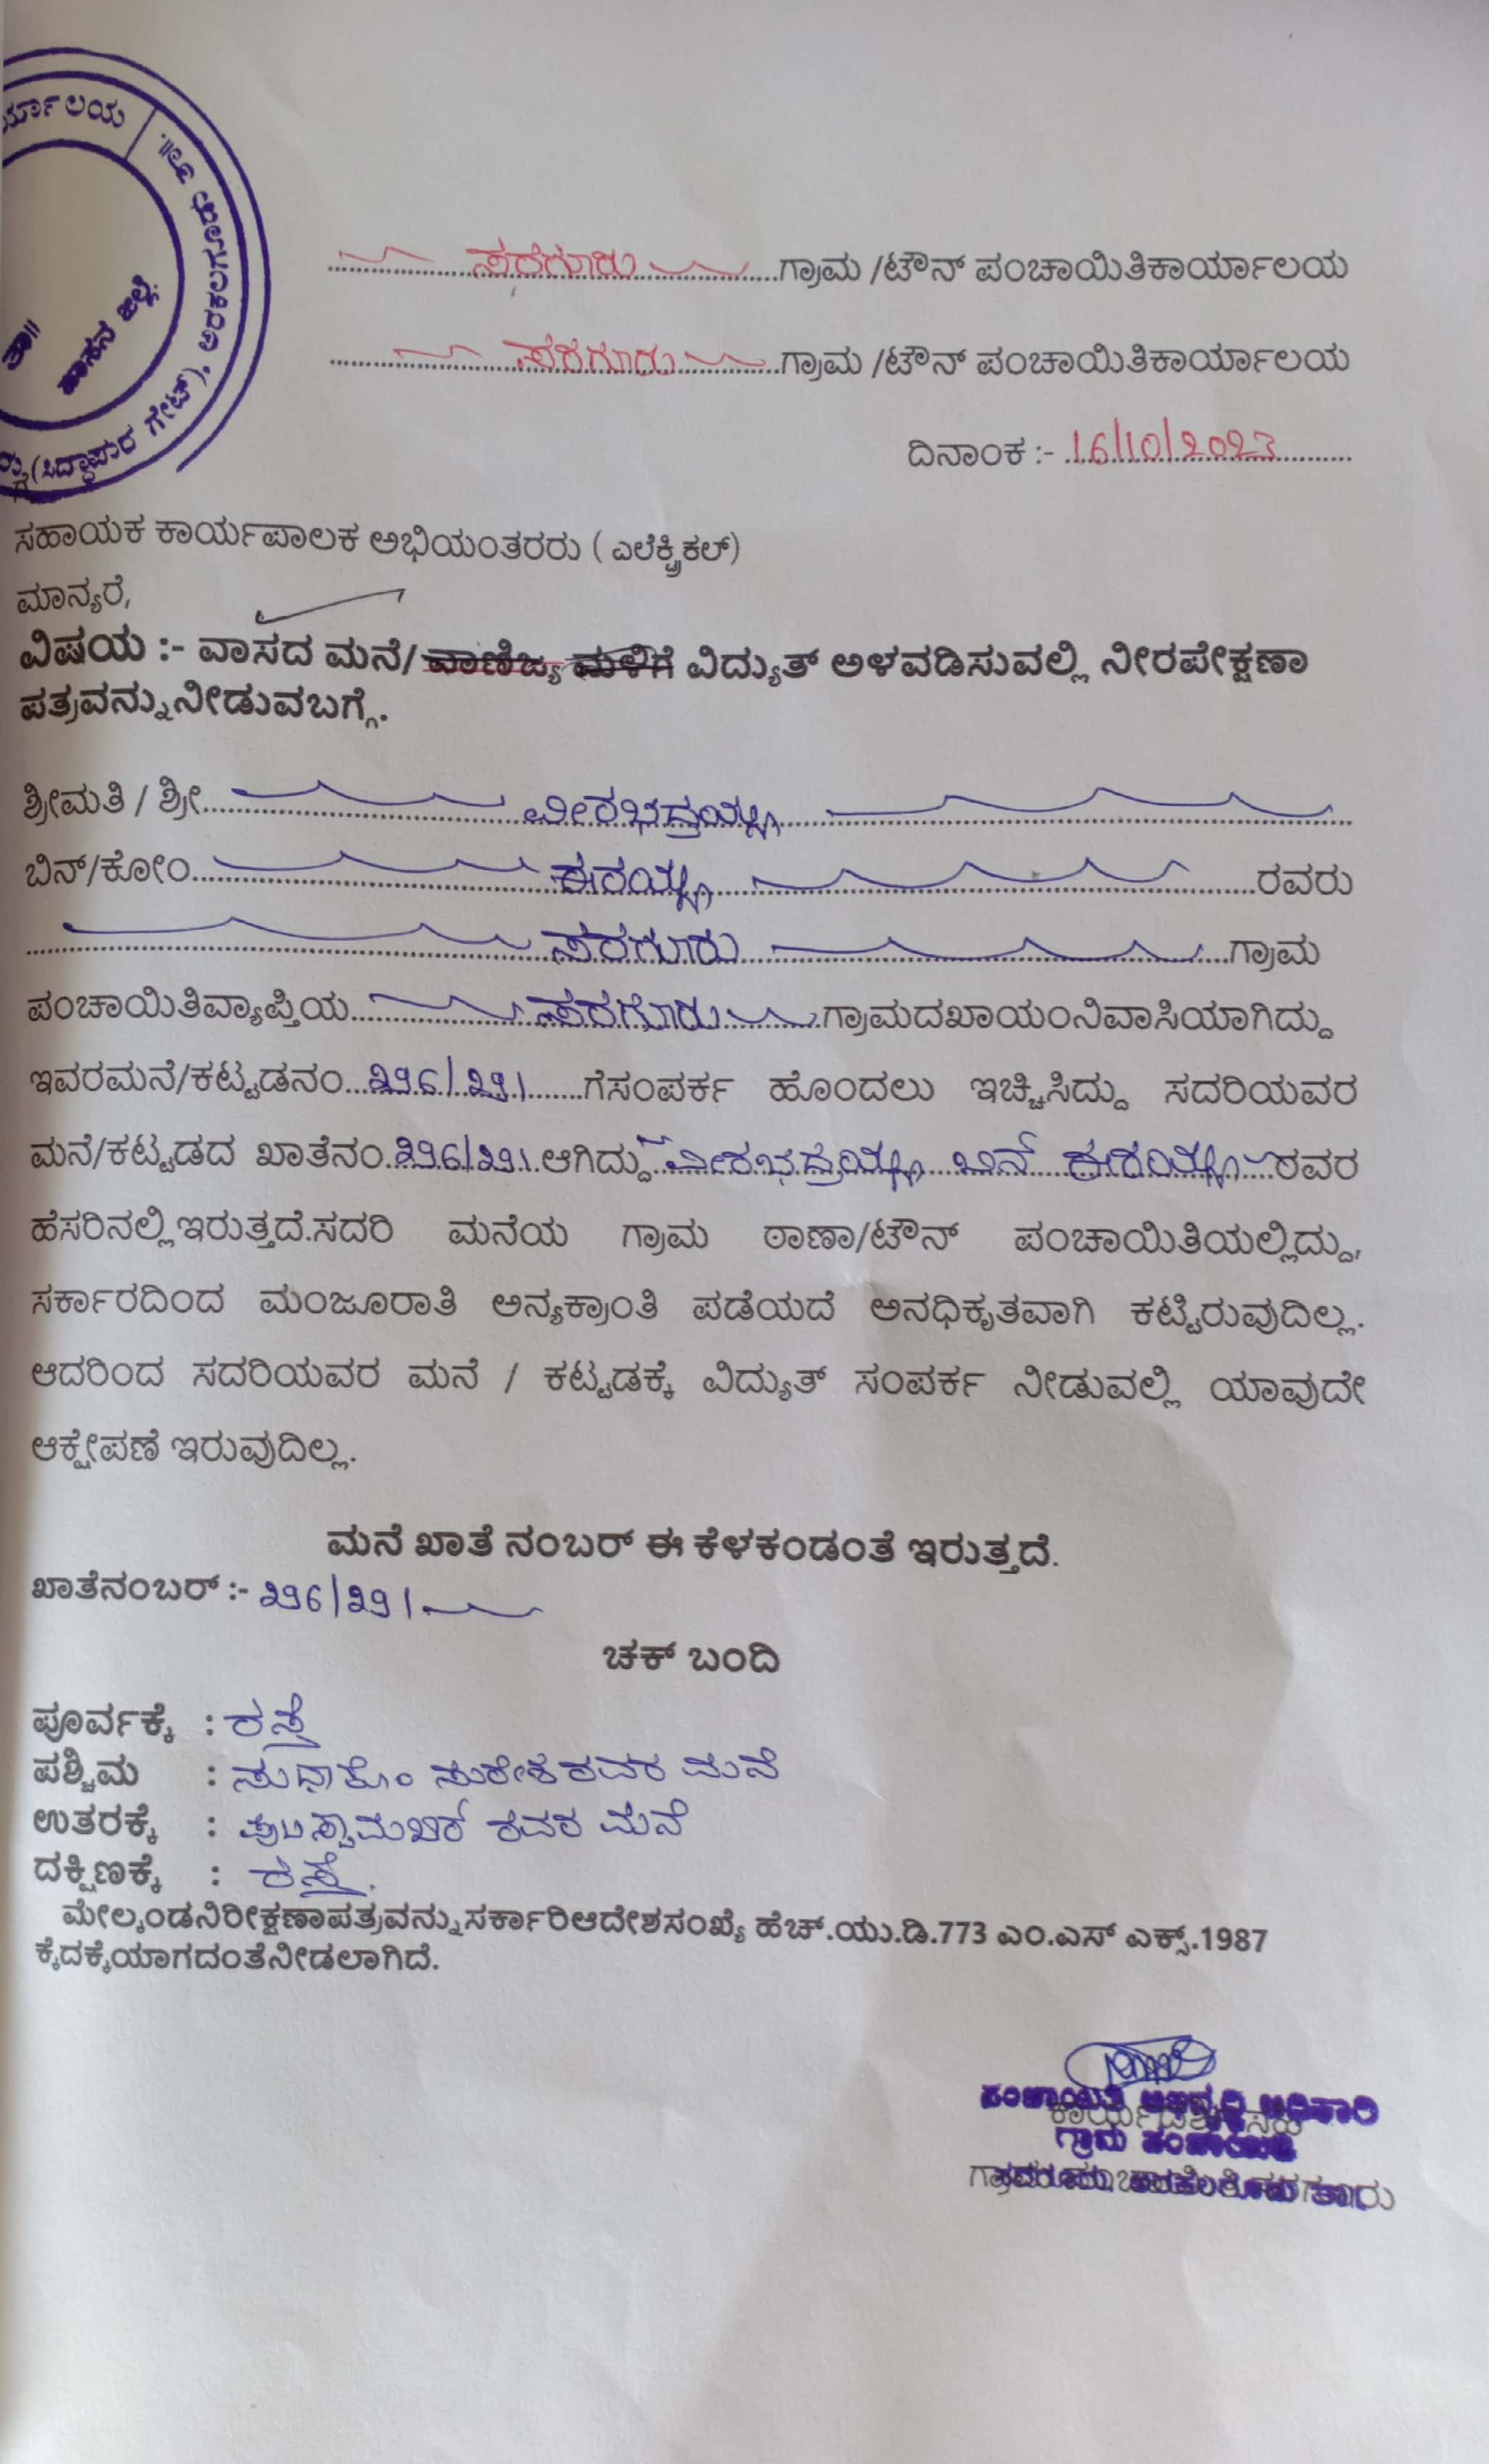 ಅರಕಲಗೂಡು ತಾ॥.
(ಸಿದ್ಧಾಪುರ ಗೇಟ್),
ತಾ॥ ಹಾಸನ ಜಿಲ್ಲೆ.
ಸರಗೂರು ಗ್ರಾಮ /ಟೌನ್ ಪಂಚಾಯಿತಿಕಾರ್ಯಾಲಯ
ಸರಗೂರು ಗ್ರಾಮ /ಟೌನ್ ಪಂಚಾಯಿತಿಕಾರ್ಯಾಲಯ
ದಿನಾಂಕ :- 16/10/2023
ಸಹಾಯಕ ಕಾರ್ಯಪಾಲಕ ಅಭಿಯಂತರರು ( ಎಲೆಕ್ಟ್ರಿಕಲ್)
ಮಾನ್ಯರೆ,
ವಿಷಯ :- ವಾಸದ ಮನೆ/ ವಾಣಿಜ್ಯ ಮಳಿಗೆ ವಿದ್ಯುತ್ ಅಳವಡಿಸುವಲ್ಲಿ ನೀರಪೇಕ್ಷಣಾ
ಪತ್ರವನ್ನುನೀಡುವಬಗ್ಗೆ.
ಶ್ರೀಮತಿ / ಶ್ರೀ ವೀರಭದ್ರಯ್ಯ
ಬಿನ್/ಕೋಂ ಈರಯ್ಯ ರವರು
ಸರಗೂರು ಗ್ರಾಮ
ಪಂಚಾಯಿತಿವ್ಯಾಪ್ತಿಯ ಸರಗೂರು ಗ್ರಾಮದಖಾಯಂನಿವಾಸಿಯಾಗಿದ್ದು
ಇವರಮನೆ/ಕಟ್ಟಡನಂ 296/291 ಗೆಸಂಪರ್ಕ ಹೊಂದಲು ಇಚ್ಚಿಸಿದ್ದು ಸದರಿಯವರ
ಮನೆ/ಕಟ್ಟಡದ ಖಾತೆನಂ 296/291 ಆಗಿದ್ದು ವೀರಭದ್ರಯ್ಯ ಬಿನ್ ಈರಯ್ಯ ರವರ
ಹೆಸರಿನಲ್ಲಿಇರುತ್ತದೆ.ಸದರಿ ಮನೆಯ ಗ್ರಾಮ ಠಾಣಾ/ಟೌನ್ ಪಂಚಾಯಿತಿಯಲ್ಲಿದ್ದು,
ಸರ್ಕಾರದಿಂದ ಮಂಜೂರಾತಿ ಅನ್ಯಕ್ರಾಂತಿ ಪಡೆಯದೆ ಅನಧಿಕೃತವಾಗಿ ಕಟ್ಟಿರುವುದಿಲ್ಲ.
ಆದರಿಂದ ಸದರಿಯವರ ಮನೆ / ಕಟ್ಟಡಕ್ಕೆ ವಿದ್ಯುತ್ ಸಂಪರ್ಕ ನೀಡುವಲ್ಲಿ ಯಾವುದೇ
ಆಕ್ಷೇಪಣೆ ಇರುವುದಿಲ್ಲ.
ಮನೆ ಖಾತೆ ನಂಬರ್ ಈ ಕೆಳಕಂಡಂತೆ ಇರುತ್ತದೆ.
ಖಾತೆನಂಬರ್ :- 296/291
ಚಕ್ ಬಂದಿ
ಪೂರ್ವಕ್ಕೆ : ರಸ್ತೆ
ಪಶ್ಚಿಮ : ಸುಧಾಕೋಂ ಸುರೇಶರವರ ಮನೆ
ಉತರಕ್ಕೆ : ರವರ ಮನೆ
ದಕ್ಷಿಣಕ್ಕೆ : ರಸ್ತೆ.
ಮೇಲ್ಕಂಡನಿರೀಕ್ಷಣಾಪತ್ರವನ್ನುಸರ್ಕಾರಿಆದೇಶಸಂಖ್ಯೆ ಹೆಚ್.ಯು.ಡಿ.773 ಎಂ.ಎಸ್ ಎಕ್ಸ್.1987
ಕ್ಕೆದಕ್ಕೆಯಾಗದಂತೆನೀಡಲಾಗಿದೆ.
ಪಂಚಾಯಿತಿ ಅಭಿವೃದ್ಧಿ ಅಧಿಕಾರಿ
ಗ್ರಾಮ ಪಂಚಾಯಿತಿ